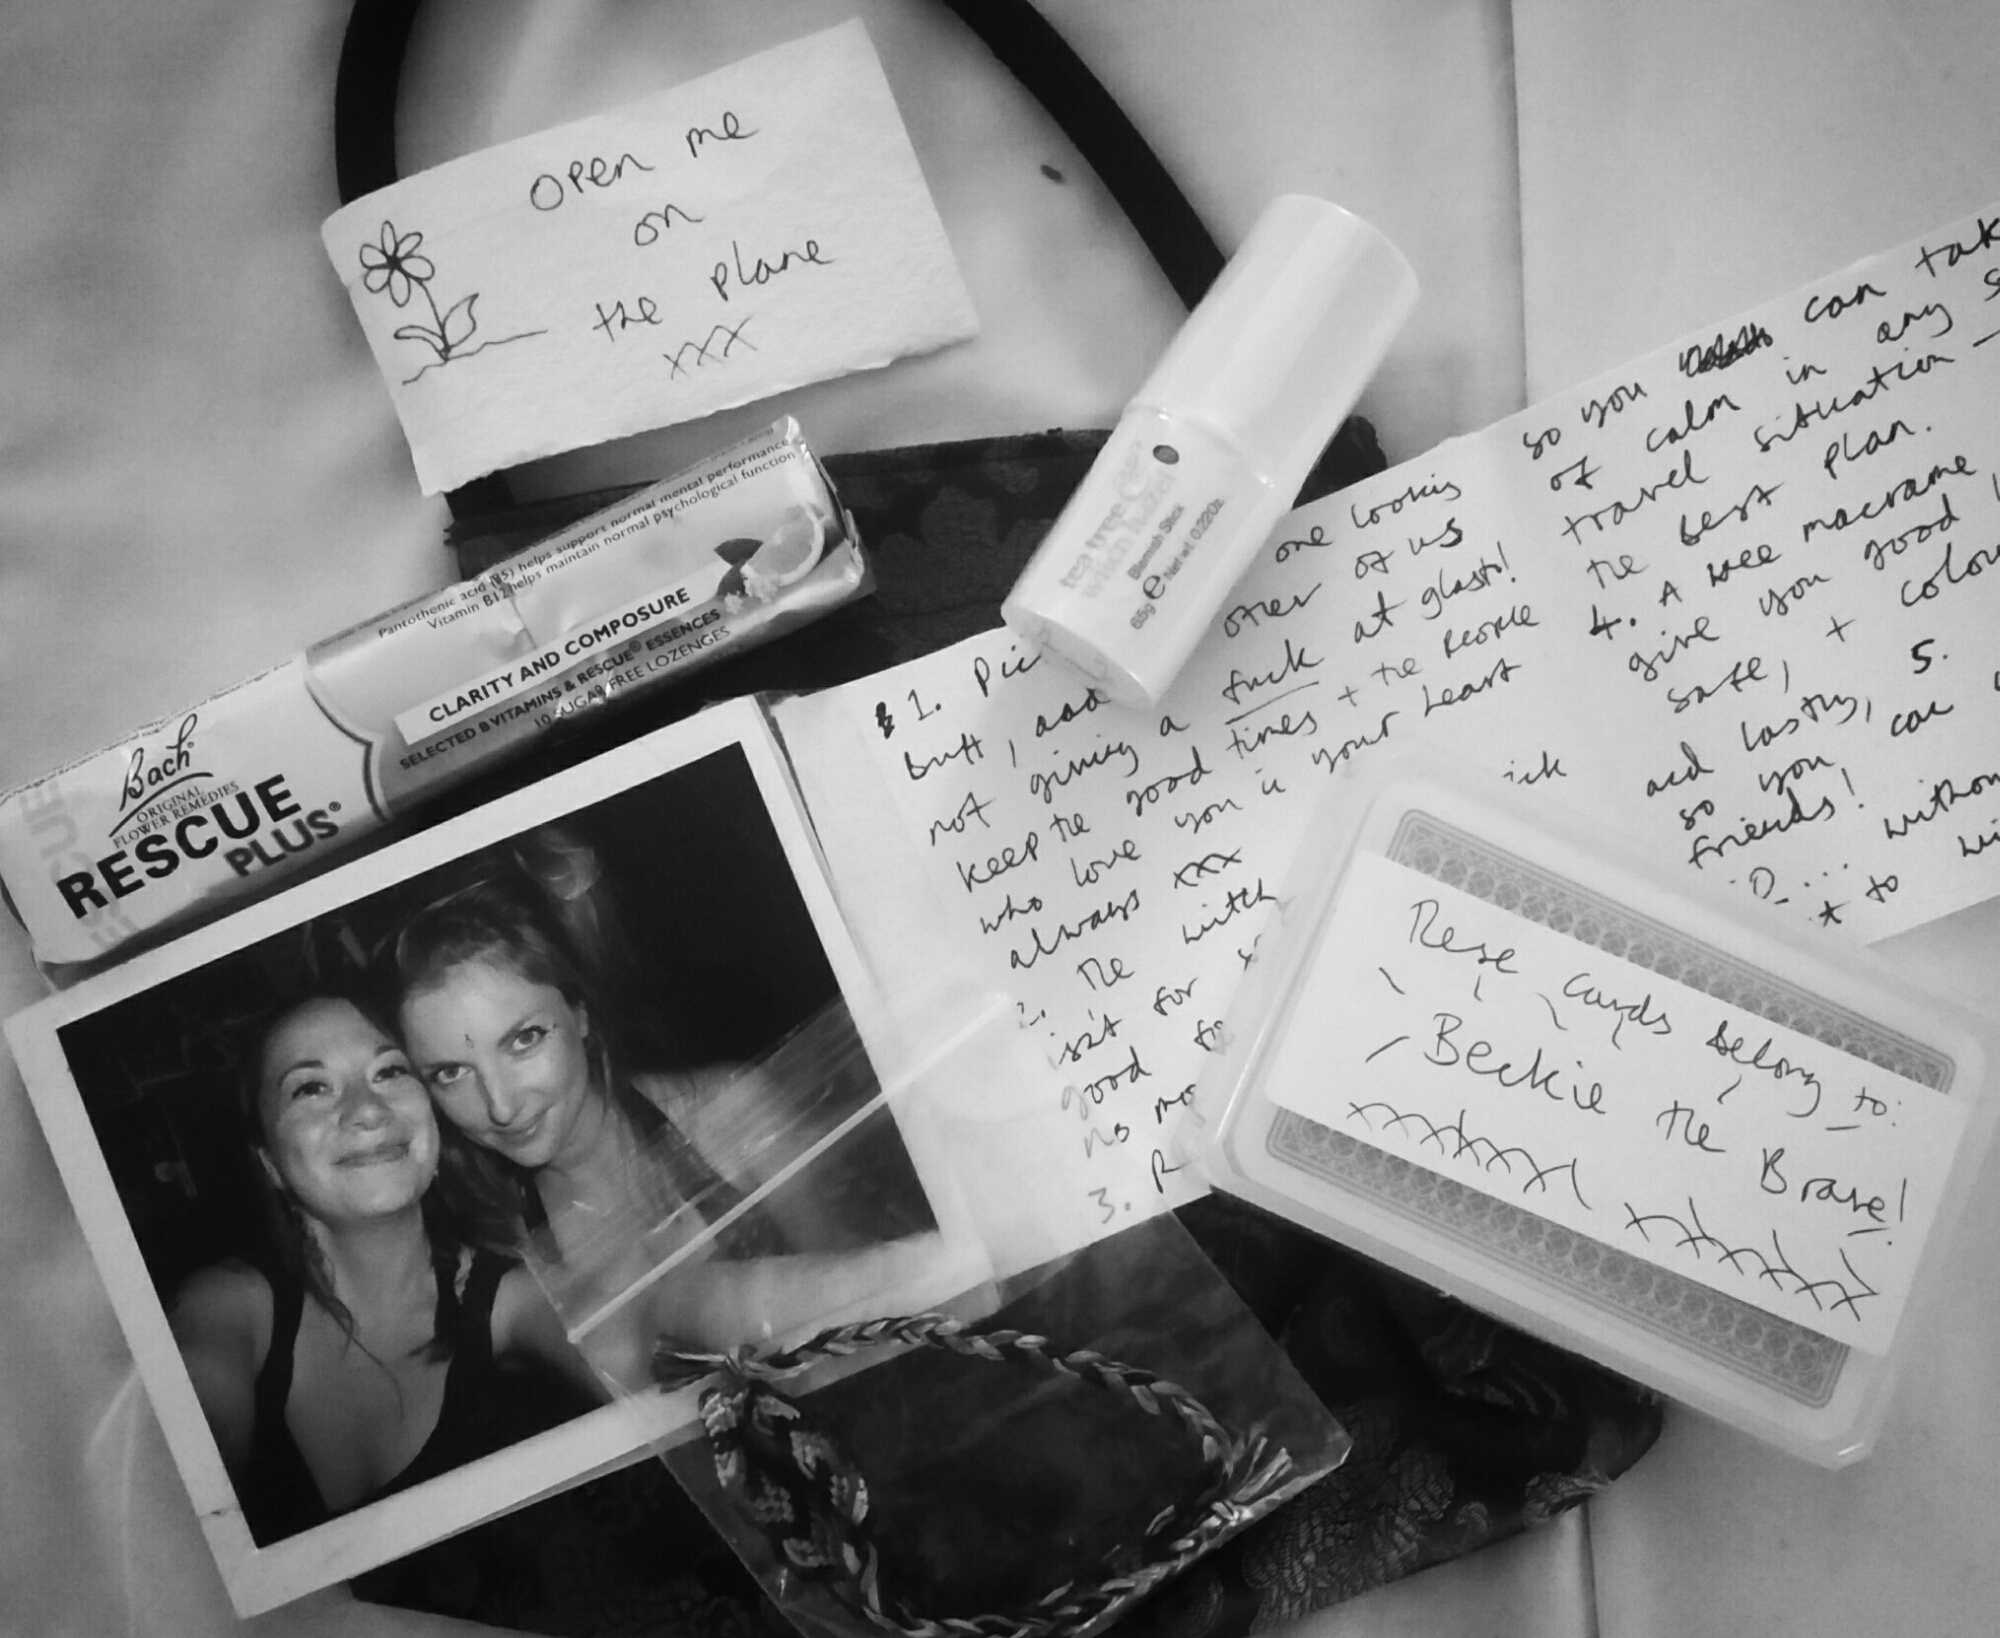 open me
on
the plane
xxx
Pantothenic acid (B5) helps support normal mental performance
Vitamin B12 helps maintain normal psychological function
CLARITY AND COMPOSURE
SELECTED B VITAMINS & RESCUE® ESSENCES
10 SUGAR FREE LOZENGES
Bach
ORIGINAL
FLOWER REMEDIES
RESCUE
PLUS®
tea tree
witch hazel
Blemish Stick
6.5g e Net wt. 0.22Oz
1. Pic one looking
butt, and other of us
not giving a fuck at glasto!
keep the good times + the people
who love you in your heart
always xxx
2. The witch
isn't for
good
no
3.
so you can
of calm in any
travel situation –
the best plan.
4. A wee macrame
give you good
safe, +
and lastly, 5.
so you can
friends!
These cards belong to:
Beckie the Brave!